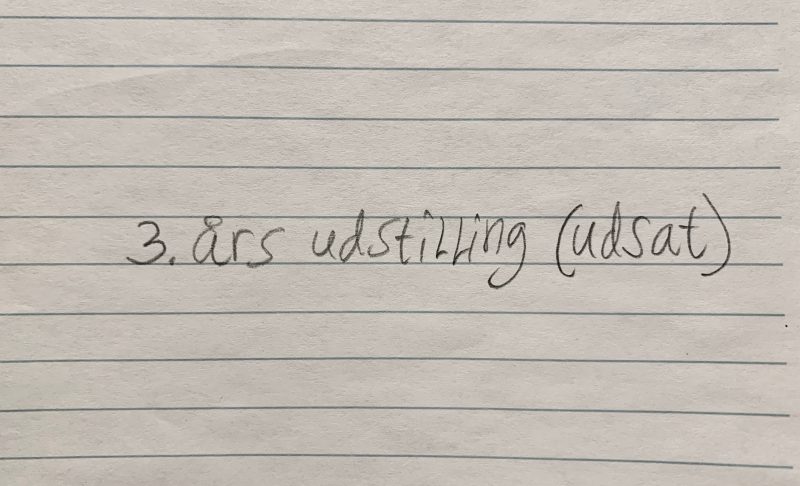 3. års udstilling (udsat)